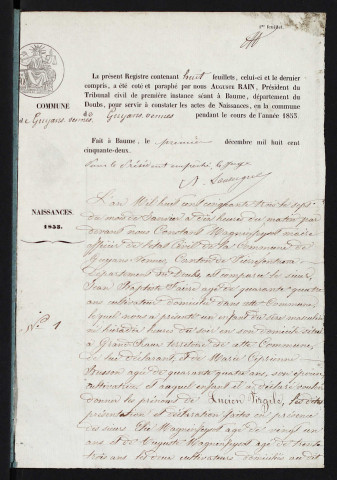 1er feuillet.
La présent Registre contenant huit feuillets, celui-ci et le dernier
compris, a été coté et paraphé par nous Auguste BAIN, Président du
Tribunal civil de première instance séant à Baume, département du
Doubs, pour servir à constater les actes de Naissances, en la commune
COMMUNE
de Guyans-vennes
de Guyans-vennes pendant le cours de l'année 1853.
Fait à Baume, le premier décembre mil huit cent
cinquante-deux.
Pour le Président empêché, le Juge
NAISSANCES
1853.
L'an Mil huit cent cinquante trois le sept
du mois de Janvier à dix heures du matin par
devant nous Constant Wagnerfipoy maire
officier de l'état Civil de la Commune de
Guyans-Vennes Canton de Pierrefontaine
Département du Doubs, est comparu le sieur
Jean Baptiste Faivre âgé de quarante quatre
ans cultivateur domicilié dans cette Commune
N° 1
lequel nous a présenté un enfant du sexe masculin
né heures du soir en son domicile situé
à Grandcham territoire de cette Commune,
de lui déclarant, et de Marie Céprienne
âgée de quarante quatre ans, son épouse
cultivatrice et auquel enfant il a déclaré vouloir
donner les prénoms de Lucien Virgile, les dites
présentation et déclaration faites en présence
des sieurs âgé de vingt un
ans et de Auguste âgé de trente
trois ans les deux cultivateurs domiciliés au dit